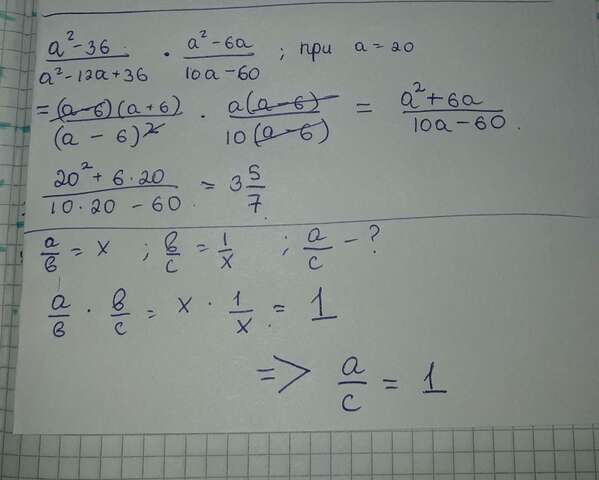 (a²-36)/(a²-12a+36) · (a²-6a)/(10a-60) ; при a=20
= (a-6)(a+6)/(a-6)² · a(a-6)/10(a-6) = (a²+6a)/(10a-60).
(20²+6·20)/(10·20-60) = 3 5/7.
a/в = x ; в/c = 1/x ; a/c - ?
a/в · в/c = x · 1/x = 1
=> a/c = 1